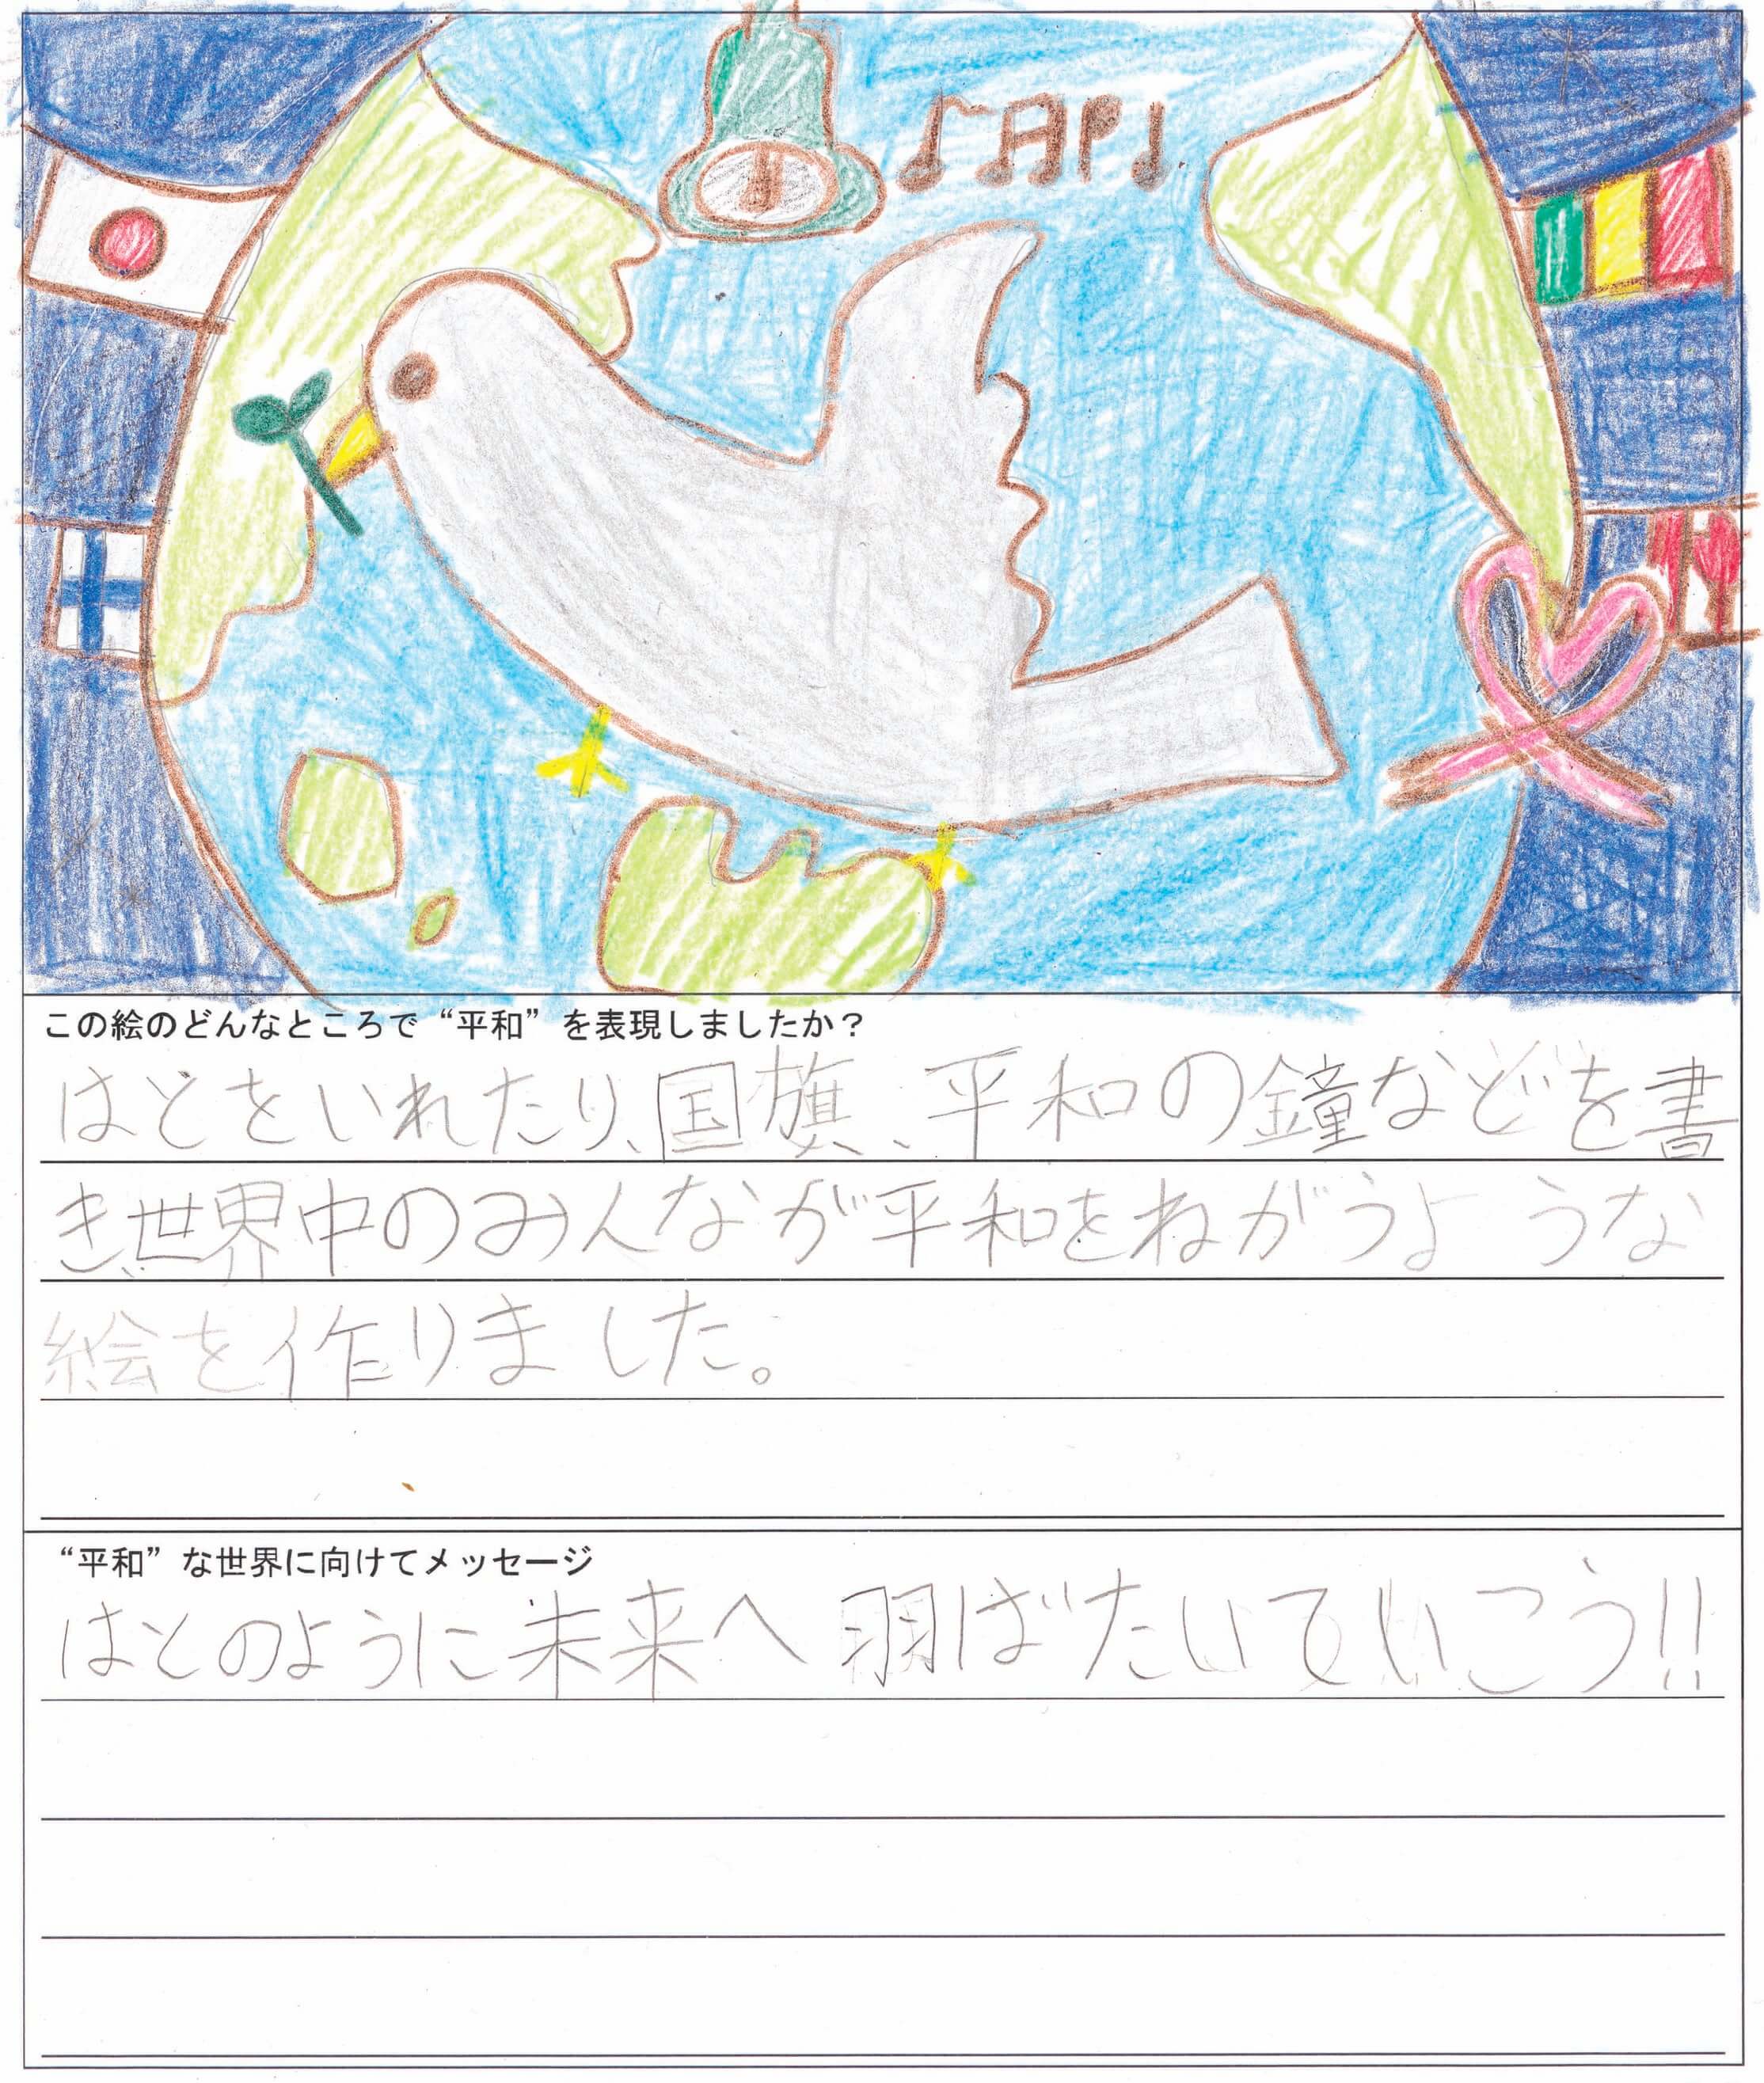 この絵のどんなところで“平和”を表現しましたか？
はとをいれたり、国旗、平和の鐘などを書
き、世界中のみんなが平和をねがうような
絵を作りました。
“平和”な世界に向けてメッセージ
はとのように未来へ羽ばたいていこう!!